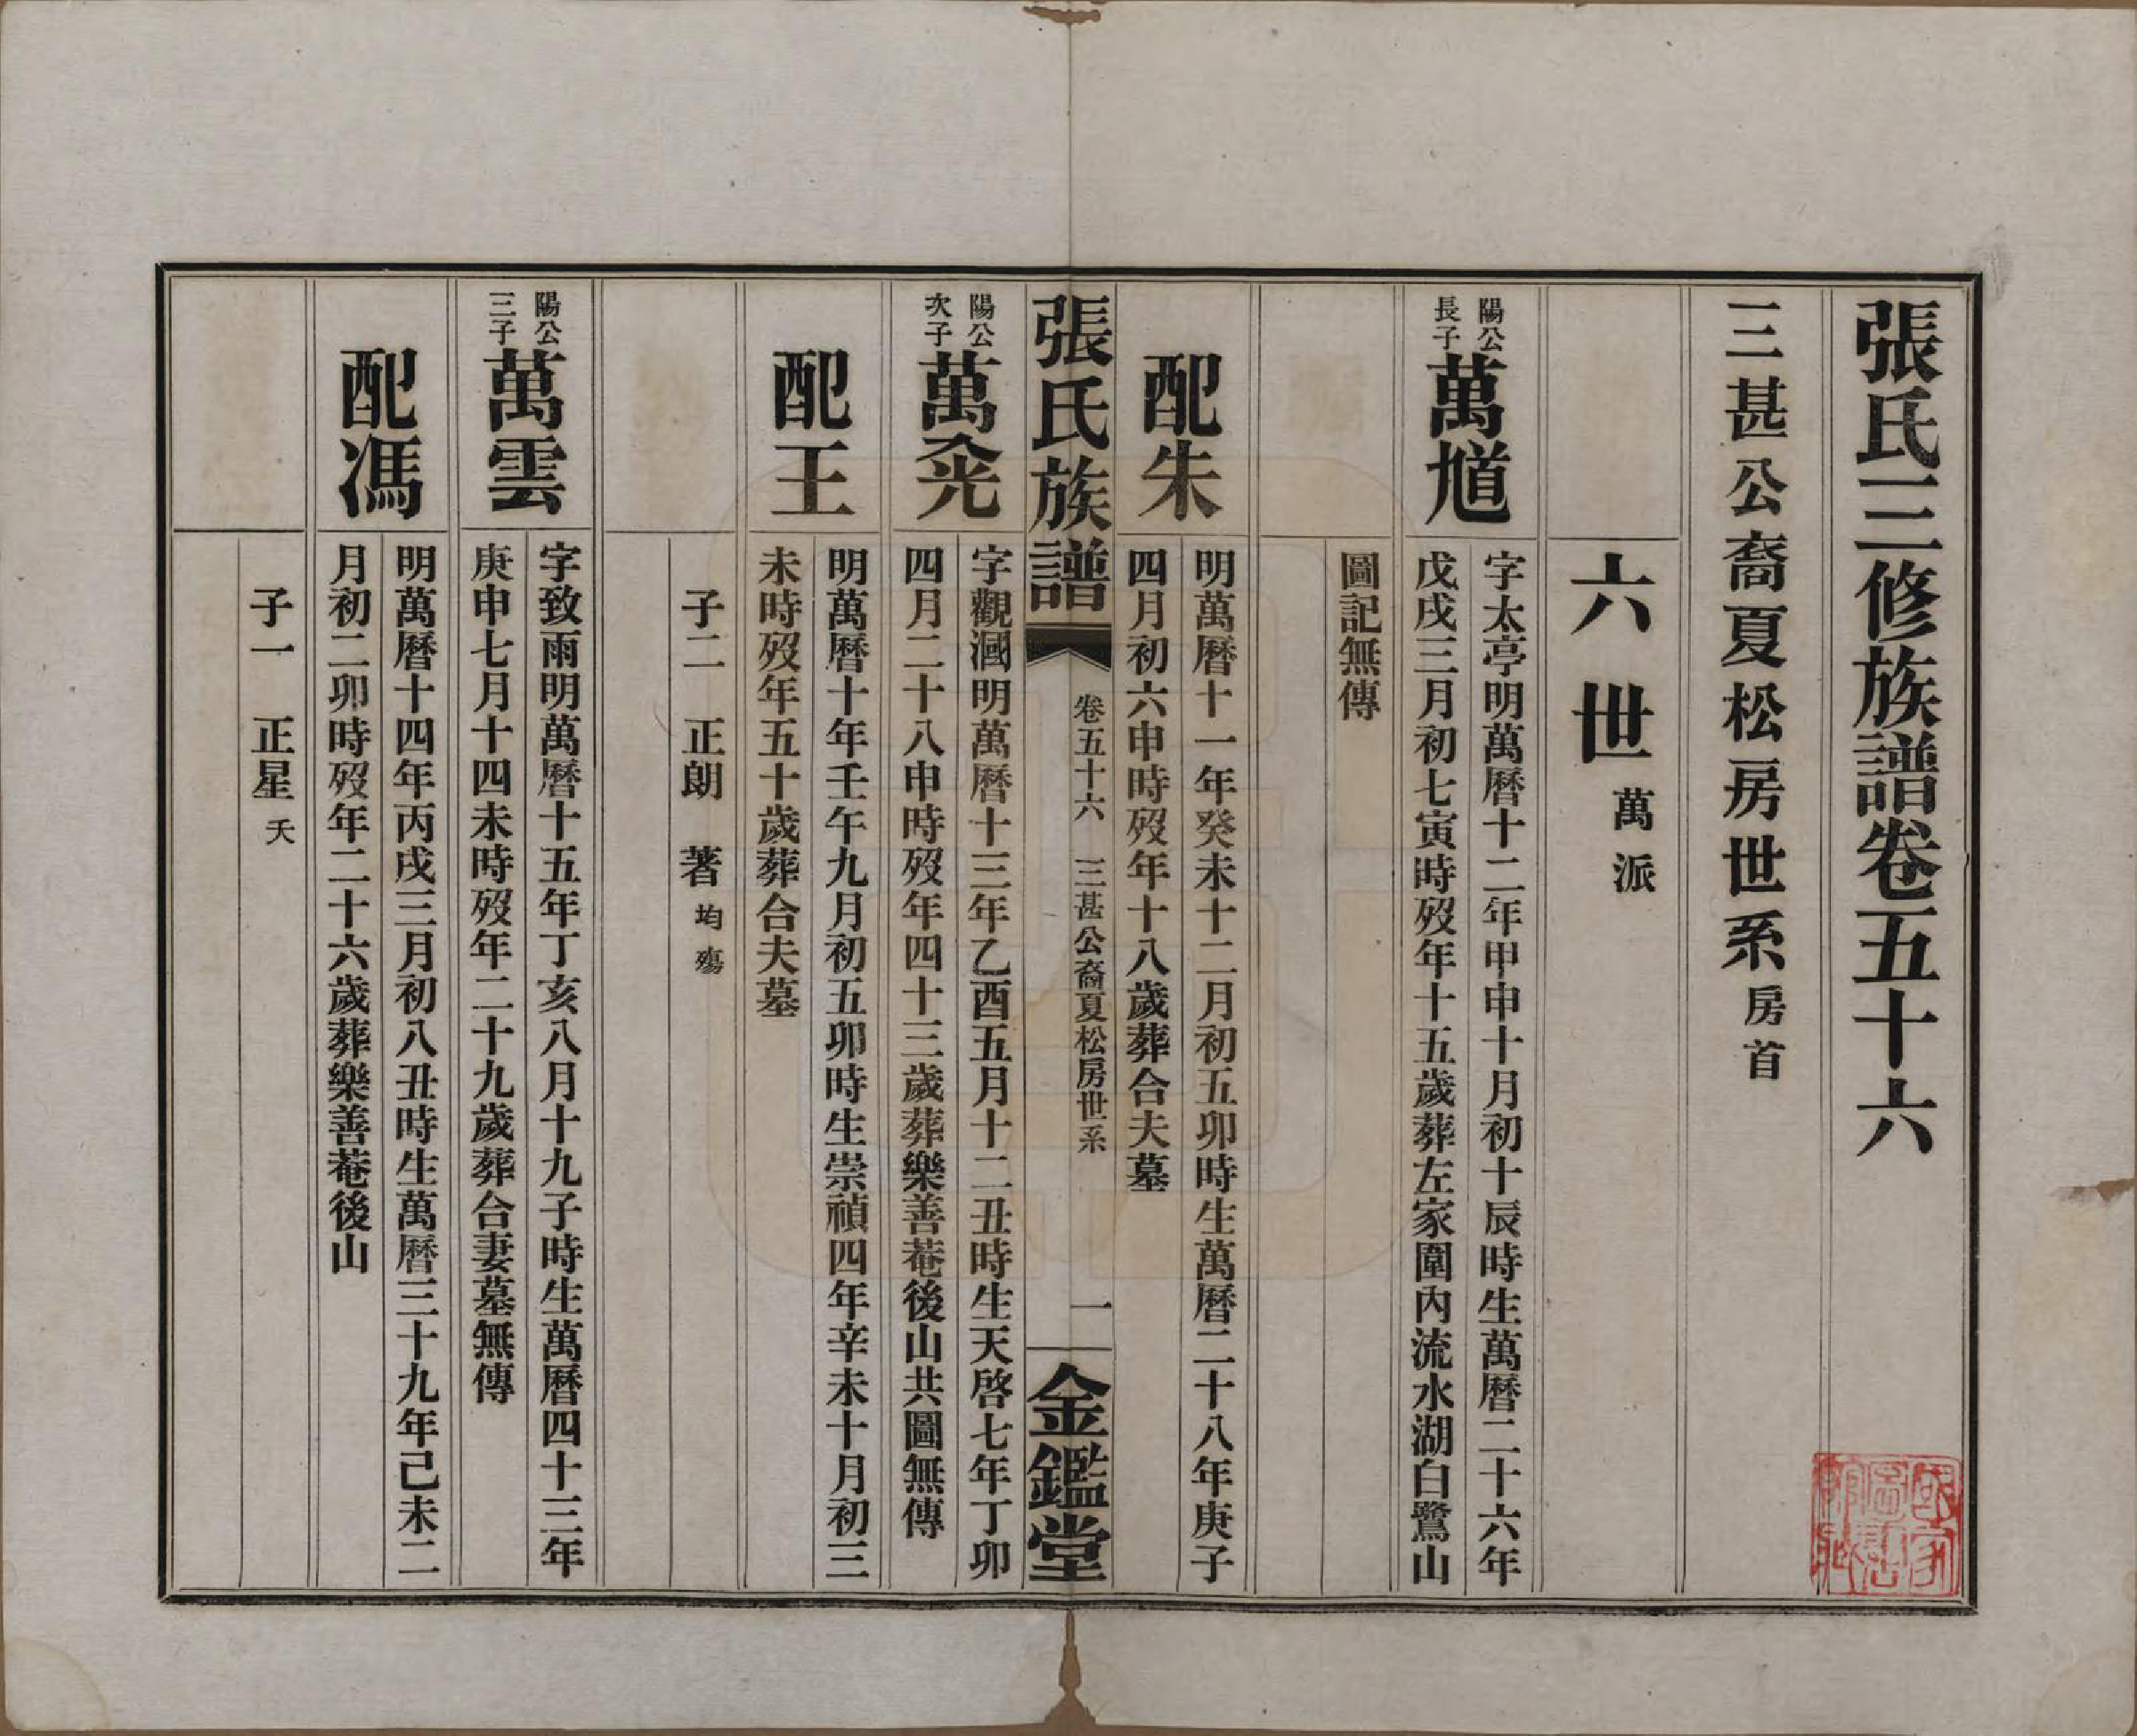 張氏三修族譜卷五十六
三甚公裔夏松房世系房首
六世萬派
陽公長子
萬馗
字太亭明萬曆十二年甲申十月初十辰時生萬曆二十六年
戊戌三月初七寅時歿年十五歲葬左家圍內流水湖白鷺山
圖記無傳
配朱
明萬曆十一年癸未十二月初五卯時生萬曆二十八年庚子
四月初六申時歿年十八歲葬合夫墓
張氏族譜
卷五十六 三甚公裔夏松房世系
一
金鑑堂
陽公次子
萬
字觀漍明萬曆十三年乙酉五月十二丑時生天啓七年丁卯
四月二十八申時歿年四十三歲葬樂善菴後山共圖無傳
配王
明萬曆十年壬午九月初五卯時生崇禎四年辛未十月初三
未時歿年五十歲葬合夫墓
子二 正朗 著均殤
陽公三子
萬雲
字致雨明萬曆十五年丁亥八月十九子時生萬曆四十三年
庚申七月十四未時歿年二十九歲葬合妻墓無傳
配馮
明萬曆十四年丙戌三月初八丑時生萬曆三十九年己未二
月初二卯時歿年二十六歲葬樂善菴後山
子一 正星夭